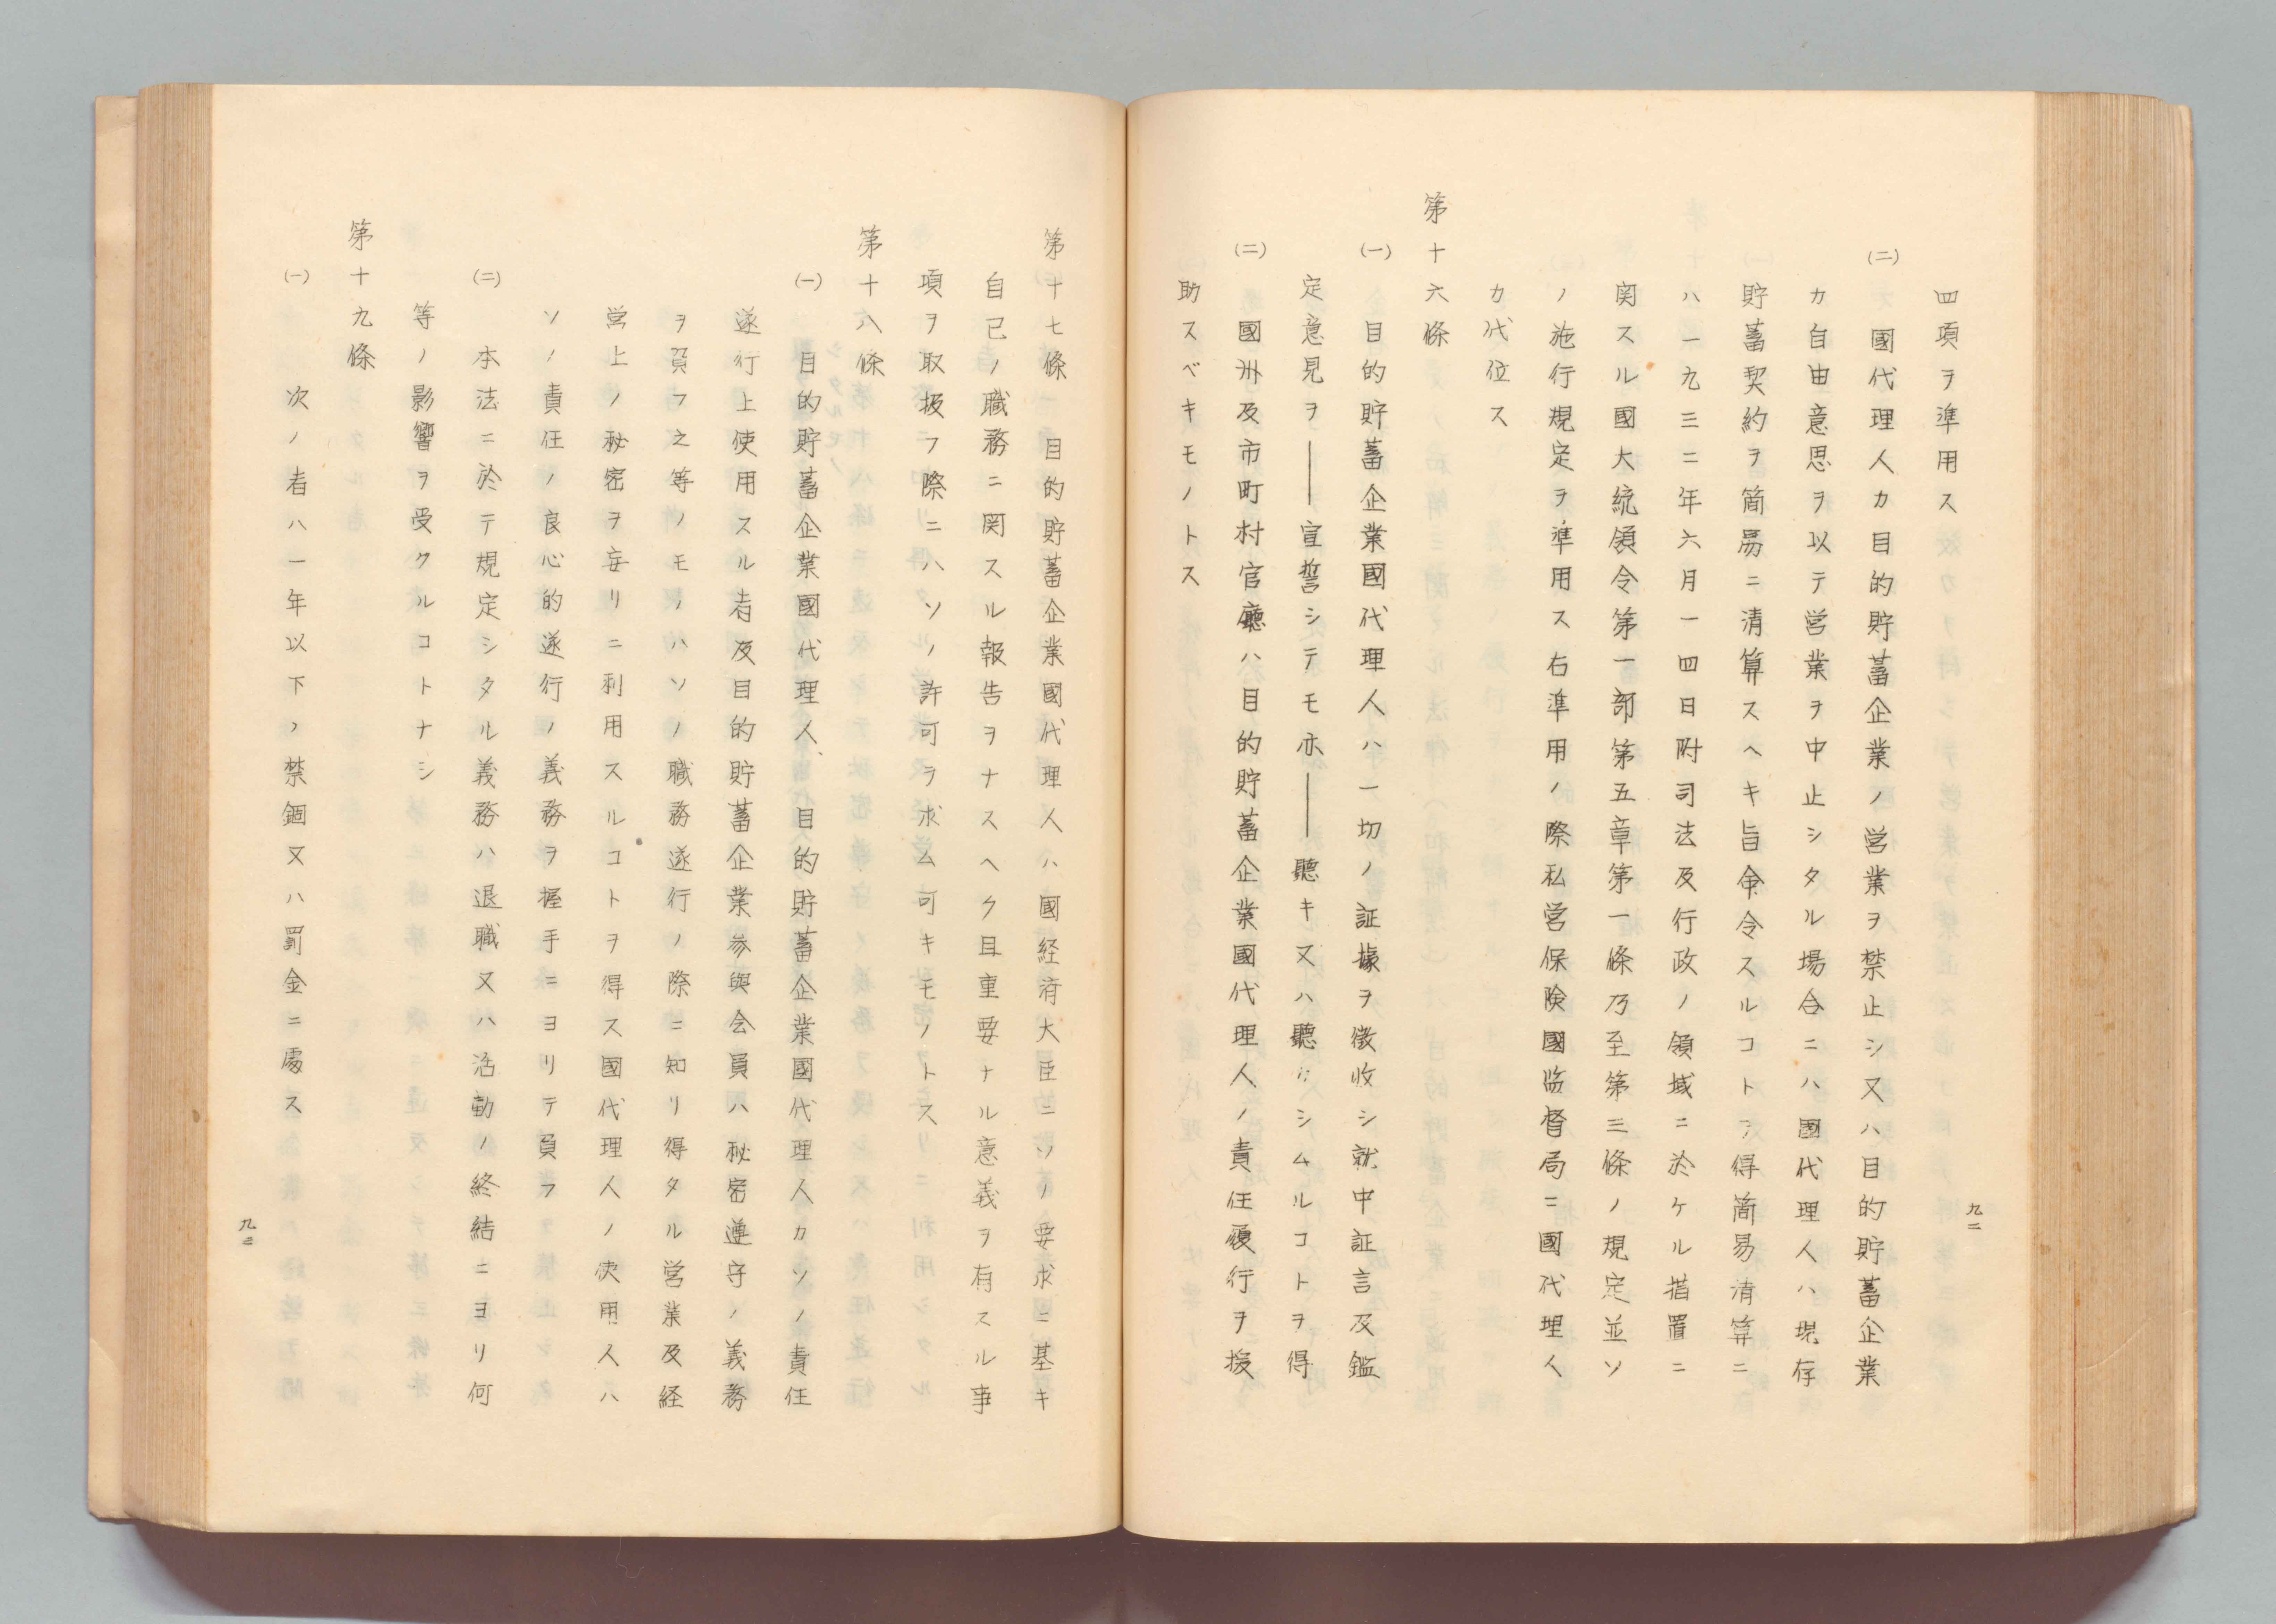 四項ヲ準用ス
(二) 國代理人カ目的貯蓄企業ノ営業ヲ禁止シ又ハ目的貯蓄企業
カ自由意思ヲ以テ営業ヲ中止シタル場合ニハ國代理人ハ現存
貯蓄契約ヲ簡易ニ清算スヘキ旨命令スルコトヲ得簡易清算ニ
ハ一九三二年六月一四日附司法及行政ノ領域ニ於ケル措置ニ
関スル國大統領令第一部第五章第一條乃至第三條ノ規定並ソ
ノ施行規定ヲ準用ス右準用ノ際私営保険國監督局ニ國代理人
カ代位ス
第十六條
(一) 目的貯蓄企業國代理人ハ一切ノ証據ヲ徴收シ就中証言及鑑
定意見ヲ――宣誓シテモ亦――聽キ又ハ聽カシムルコトヲ得
(二) 國洲及市町村官廳ハ目的貯蓄企業國代理人ノ責任履行ヲ援
助スベキモノトス
九二
第十七條 目的貯蓄企業國代理人ハ國経済大臣ニソノ要求ニ基キ
自己ノ職務ニ関スル報告ヲナスヘク且重要ナル意義ヲ有スル事
項ヲ取扱フ際ニハソノ許可ヲ求ム可キモノトス
第十八條
(一) 目的貯蓄企業國代理人、目的貯蓄企業國代理人カソノ責任
遂行上使用スル者及目的貯蓄企業参與会員ハ秘密遵守ノ義務
ヲ負フ之等ノモノハソノ職務遂行ノ際ニ知リ得タル営業及経
営上ノ秘密ヲ妄リニ利用スルコトヲ得ス國代理人ノ使用人ハ
ソノ責任ノ良心的遂行ノ義務ヲ握手ニヨリテ負フ
(二) 本法ニ於テ規定シタル義務ハ退職又ハ活動ノ終結ニヨリ何
等ノ影響ヲ受クルコトナシ
第十九條
(一) 次ノ者ハ一年以下ノ禁錮又ハ罰金ニ處ス
九三